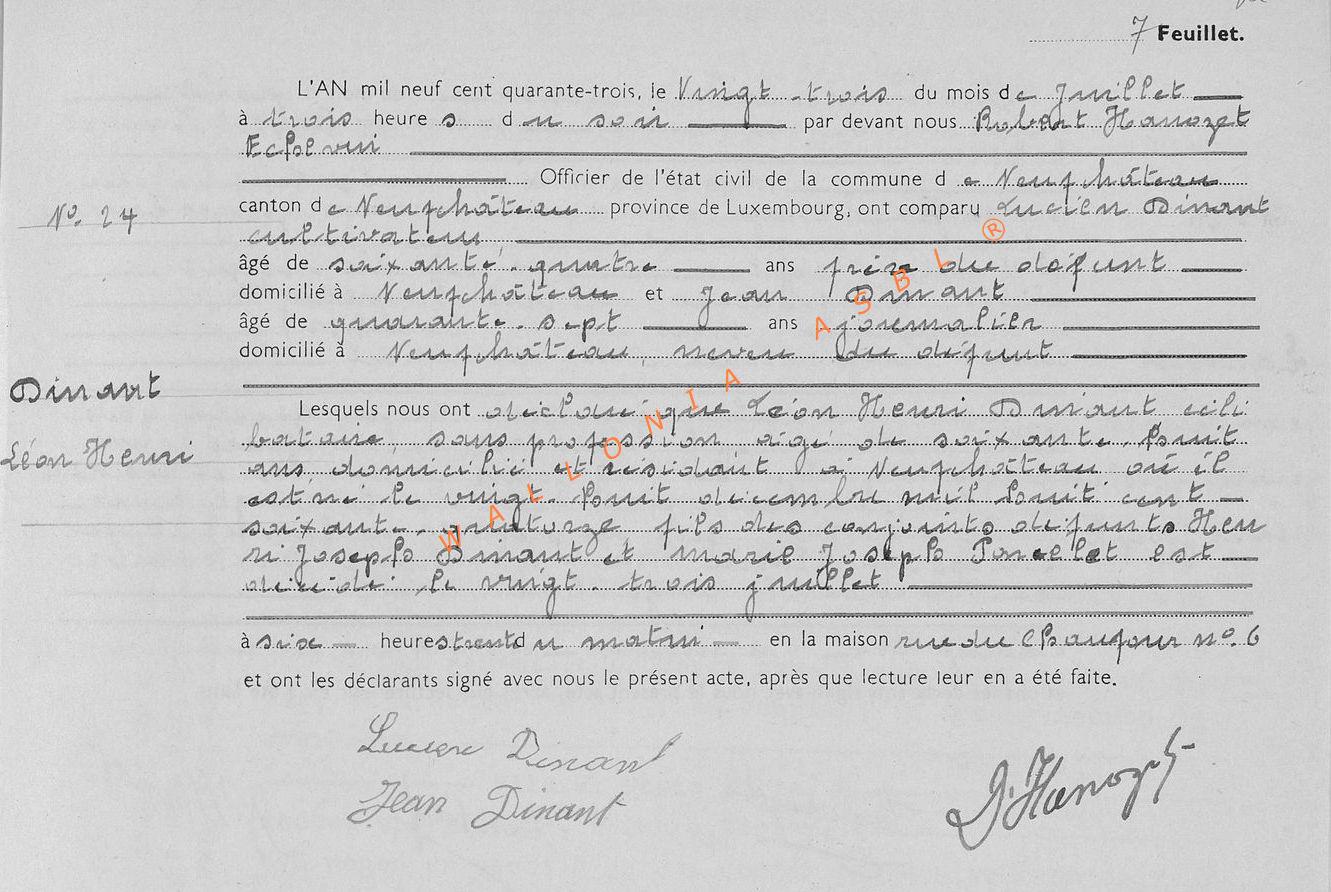 7 Feuillet.
L'AN mil neuf cent quarante-trois, le Vingt-trois du mois de Juillet
à trois heures du soir par devant nous Robert Hanozet
Echevin
Officier de l'état civil de la commune de Neufchâteau
N° 24
canton de Neufchâteau province de Luxembourg, ont comparu Lucien Dinant
cultivateur
âgé de soixante-quatre ans frère du défunt
domicilié à Neufchâteau et Jean Dinant
âgé de quarante-sept ans journalier
domicilié à Neufchâteau, neveu du défunt
Dinant
Léon Henri
Lesquels nous ont déclaré que Léon Henri Dinant céli
bataire sans profession âgé de soixante-huit
ans domicilié et résidant à Neufchâteau où il
est né le vingt-huit décembre mil huit cent
soixante-quatorze fils des conjoints défunts Hen
ri Joseph Dinant et Marie Joseph Poncelet est
décédé le vingt-trois juillet
à six heures trente du matin en la maison rue du Chaufour n° 6
et ont les déclarants signé avec nous le présent acte, après que lecture leur en a été faite.
Lucien Dinant
Jean Dinant
Hanozet
WALLONIA ASBL ®